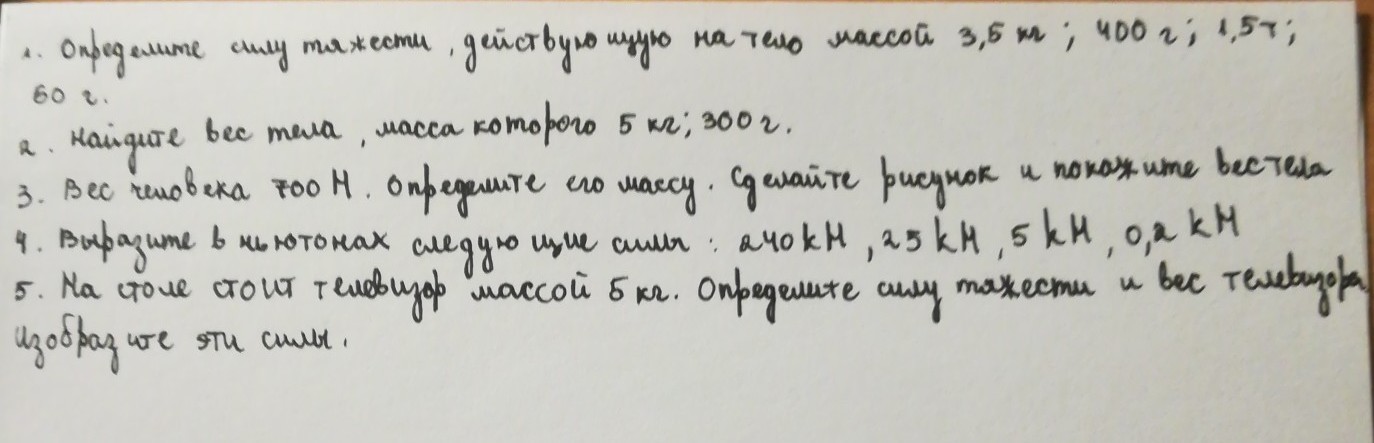 1. Определите силу тяжести, действующую на тело массой 3,5 кг; 400 г; 1,5 т;
60 г.
2. Найдите вес тела, масса которого 5 кг; 300 г.
3. Вес человека 700 Н. Определите его массу. Сделайте рисунок и покажите вес тела
4. Выразите в ньютонах следующие силы: 240 кН, 25 кН, 5 кН, 0,2 кН
5. На столе стоит телевизор массой 5 кг. Определите силу тяжести и вес телевизора.
Изобразите эти силы.